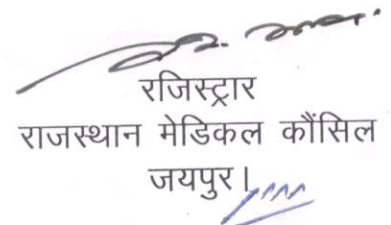 रजिस्ट्रार
राजस्थान मेडिकल कौंसिल
जयपुर।